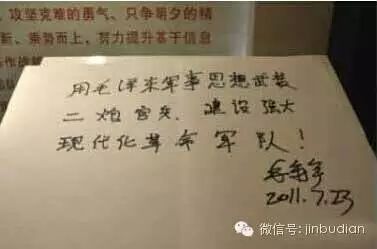 、攻坚克难的勇气、只争朝夕的精
新、乘势而上，努力提升基于信息
用毛泽东军事思想武装
二炮官兵，建设强大
现代化革命军队！
2011.7.23
微信号: jinbudian